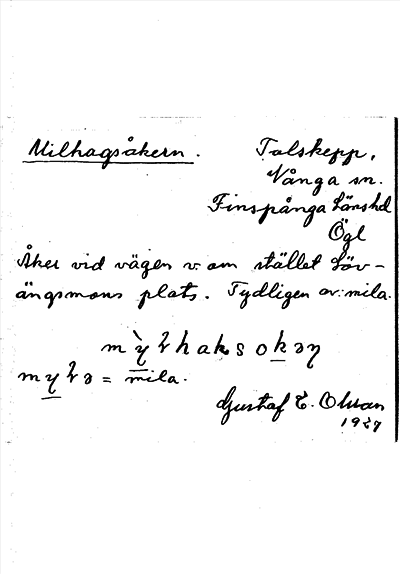 Milhagsåkern.
Talskepp,
Vånga sn.
Finspånga Länshd
Ögl
Åker vid vägen v. om stället Löv-
ängsmons plats. Tydligen av: mila.
mỳɽhaksokəɳ
myɽə = mila.
Gustaf E. Olsson
1927